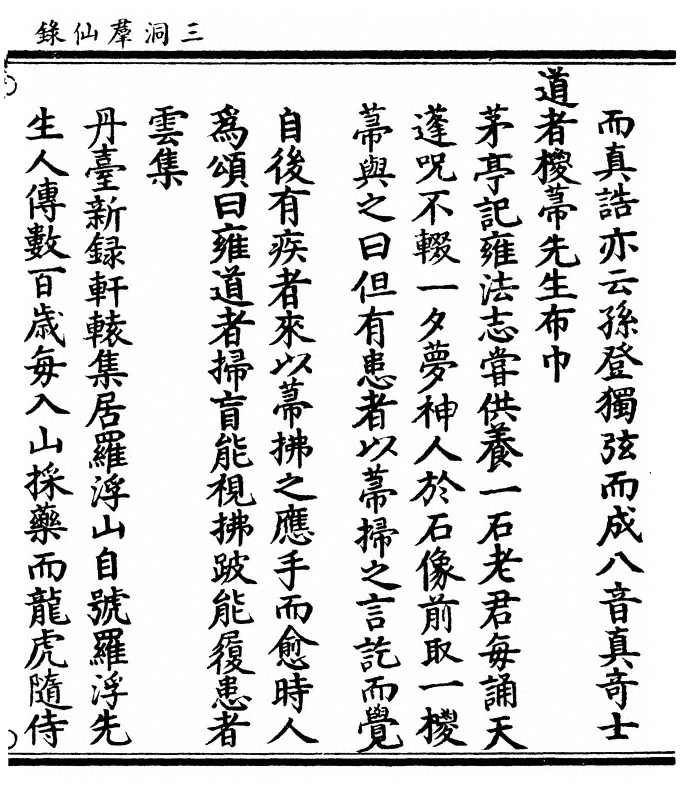 三洞羣仙錄
而真誥亦云孫登獨弦而成八音真奇士
道者椶菷先生布巾
茅亭記雍法志甞供養一石老君每誦天
蓬呪不輟一夕夢神人於石像前取一椶
菷與之曰但有患者以菷掃之言訖而覺
自後有疾者來以菷拂之應手而愈時人
爲頌曰雍道者掃盲能視拂跛能履患者
雲集
丹臺新録軒轅集居羅浮山自號羅浮先
生人傳數百歳每入山採藥而龍虎隨侍